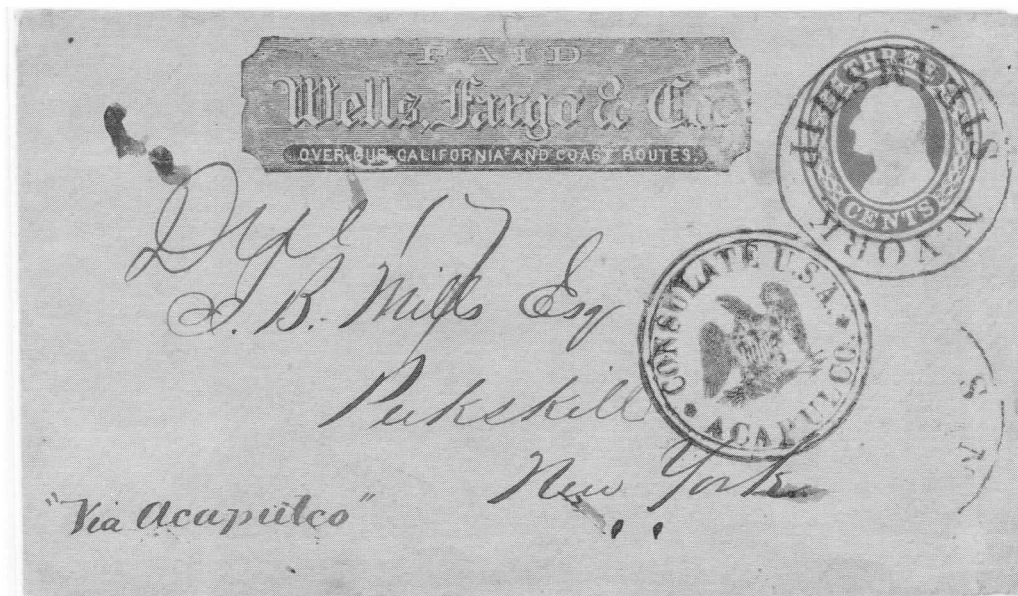 PAID
Wells, Fargo & Co.
OVER OUR CALIFORNIA AND COAST ROUTES.
THREE
CENTS
STEAMSHIP
N.YORK
Due 17
J. B. Mills Esq
Peekskill
New York
CONSULATE U.S.A.
ACAPULCO.
N S
"Via Acapulco"